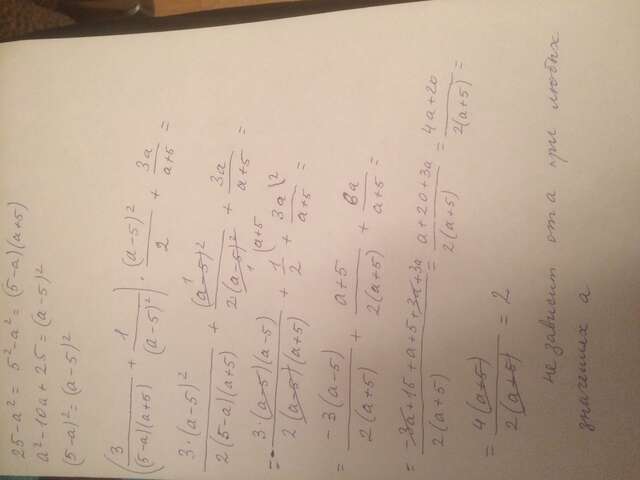 25-a² = 5²-a² = (5-a)(a+5)
a²-10a+25 = (a-5)²
(5-a)² = (a-5)²
(3/((5-a)(a+5)) + 1/(a-5)²) · (a-5)²/2 + 3a/(a+5) =
3·(a-5)²/(2(5-a)(a+5)) + (a-5)²/(2(a-5)²) + 3a/(a+5) =
= -3·(a-5)(a-5)/(2(a-5)(a+5)) + 1/2 + 3a/(a+5) =
= -3(a-5)/(2(a+5)) + (a+5)/(2(a+5)) + 6a/(a+5) =
= (-3a+15+a+5+3a+3a)/(2(a+5)) = (a+20+3a)/(2(a+5)) = (4a+20)/(2(a+5)) =
= 4(a+5)/(2(a+5)) = 2
не зависит от a при любых
значениях a